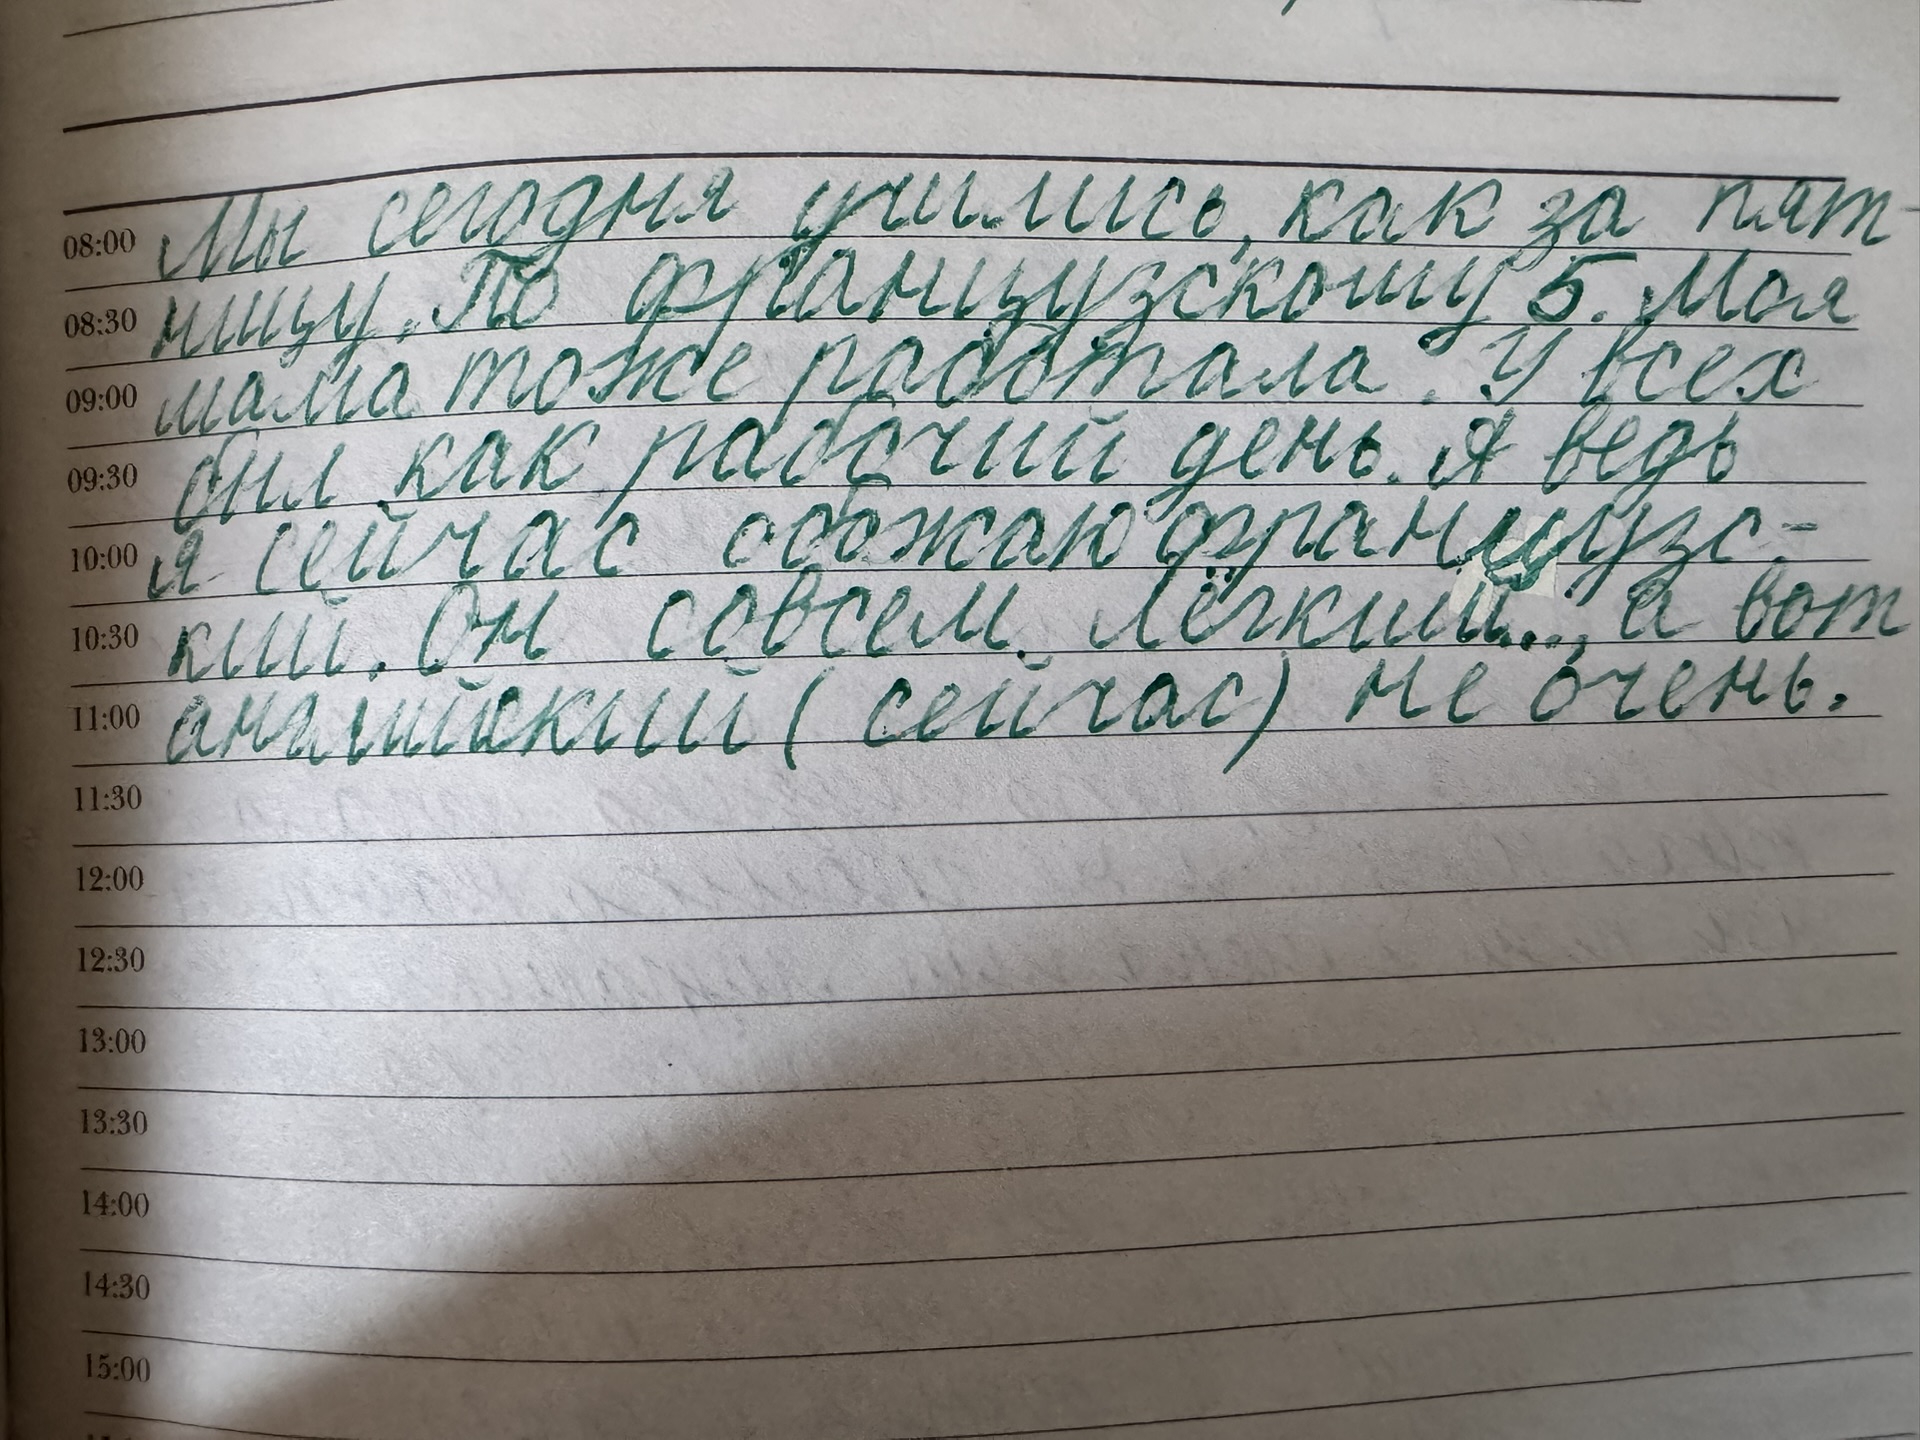 08:00 Мы сегодня учились, как за пят-
08:30 ницу. По французскому 5. Моя
09:00 мама тоже работала. У всех
09:30 был как рабочий день. Я ведь
10:00 я сейчас обожаю французс-
10:30 кий. Он совсем лёгкий..., а вот
11:00 аналийский (сейчас) не очень.
11:30
12:00
12:30
13:00
13:30
14:00
14:30
15:00